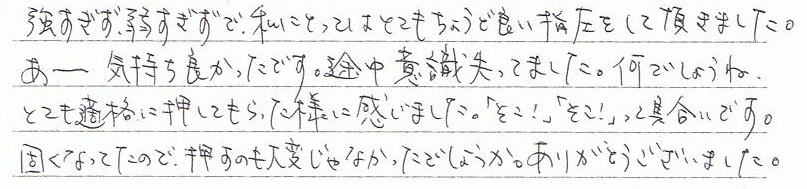 強すぎず、弱すぎずで、私にとってはとてもちょうど良い指圧をして頂きました。
あー気持ち良かったです。途中意識失ってました。何でしょうね、
とても適格に押してもらった様に感じました。「そこ!」「そこ!」って具合いです。
固くなってたので、押すのも大変じゃなかったでしょうか。ありがとうございました。